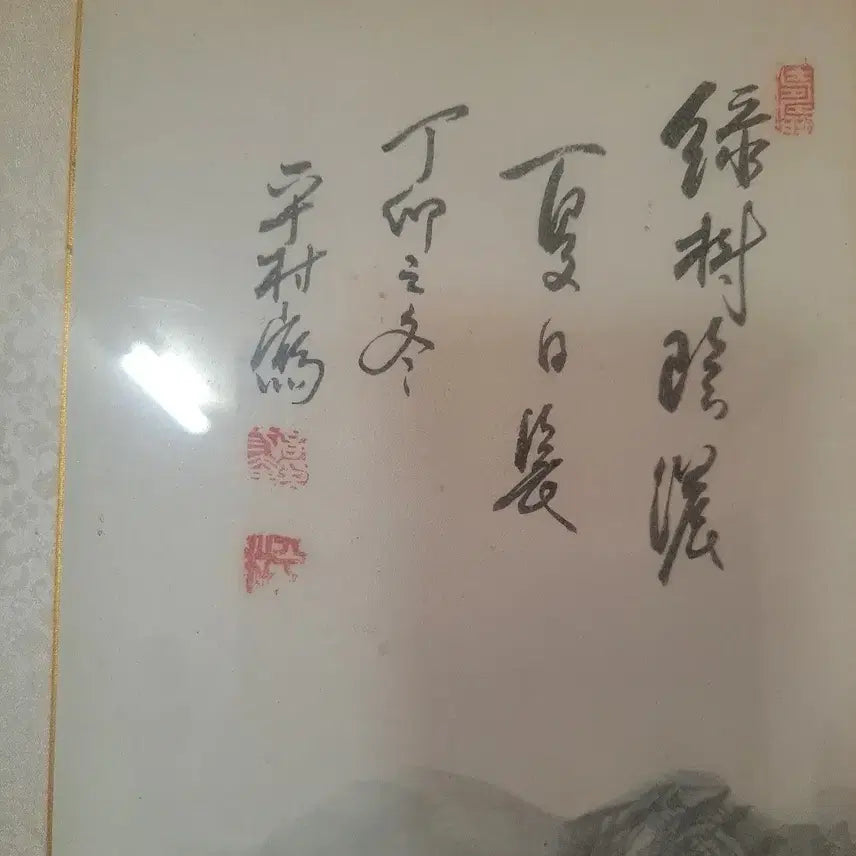 綠樹陰濃
夏日長
丁卯之冬
平村